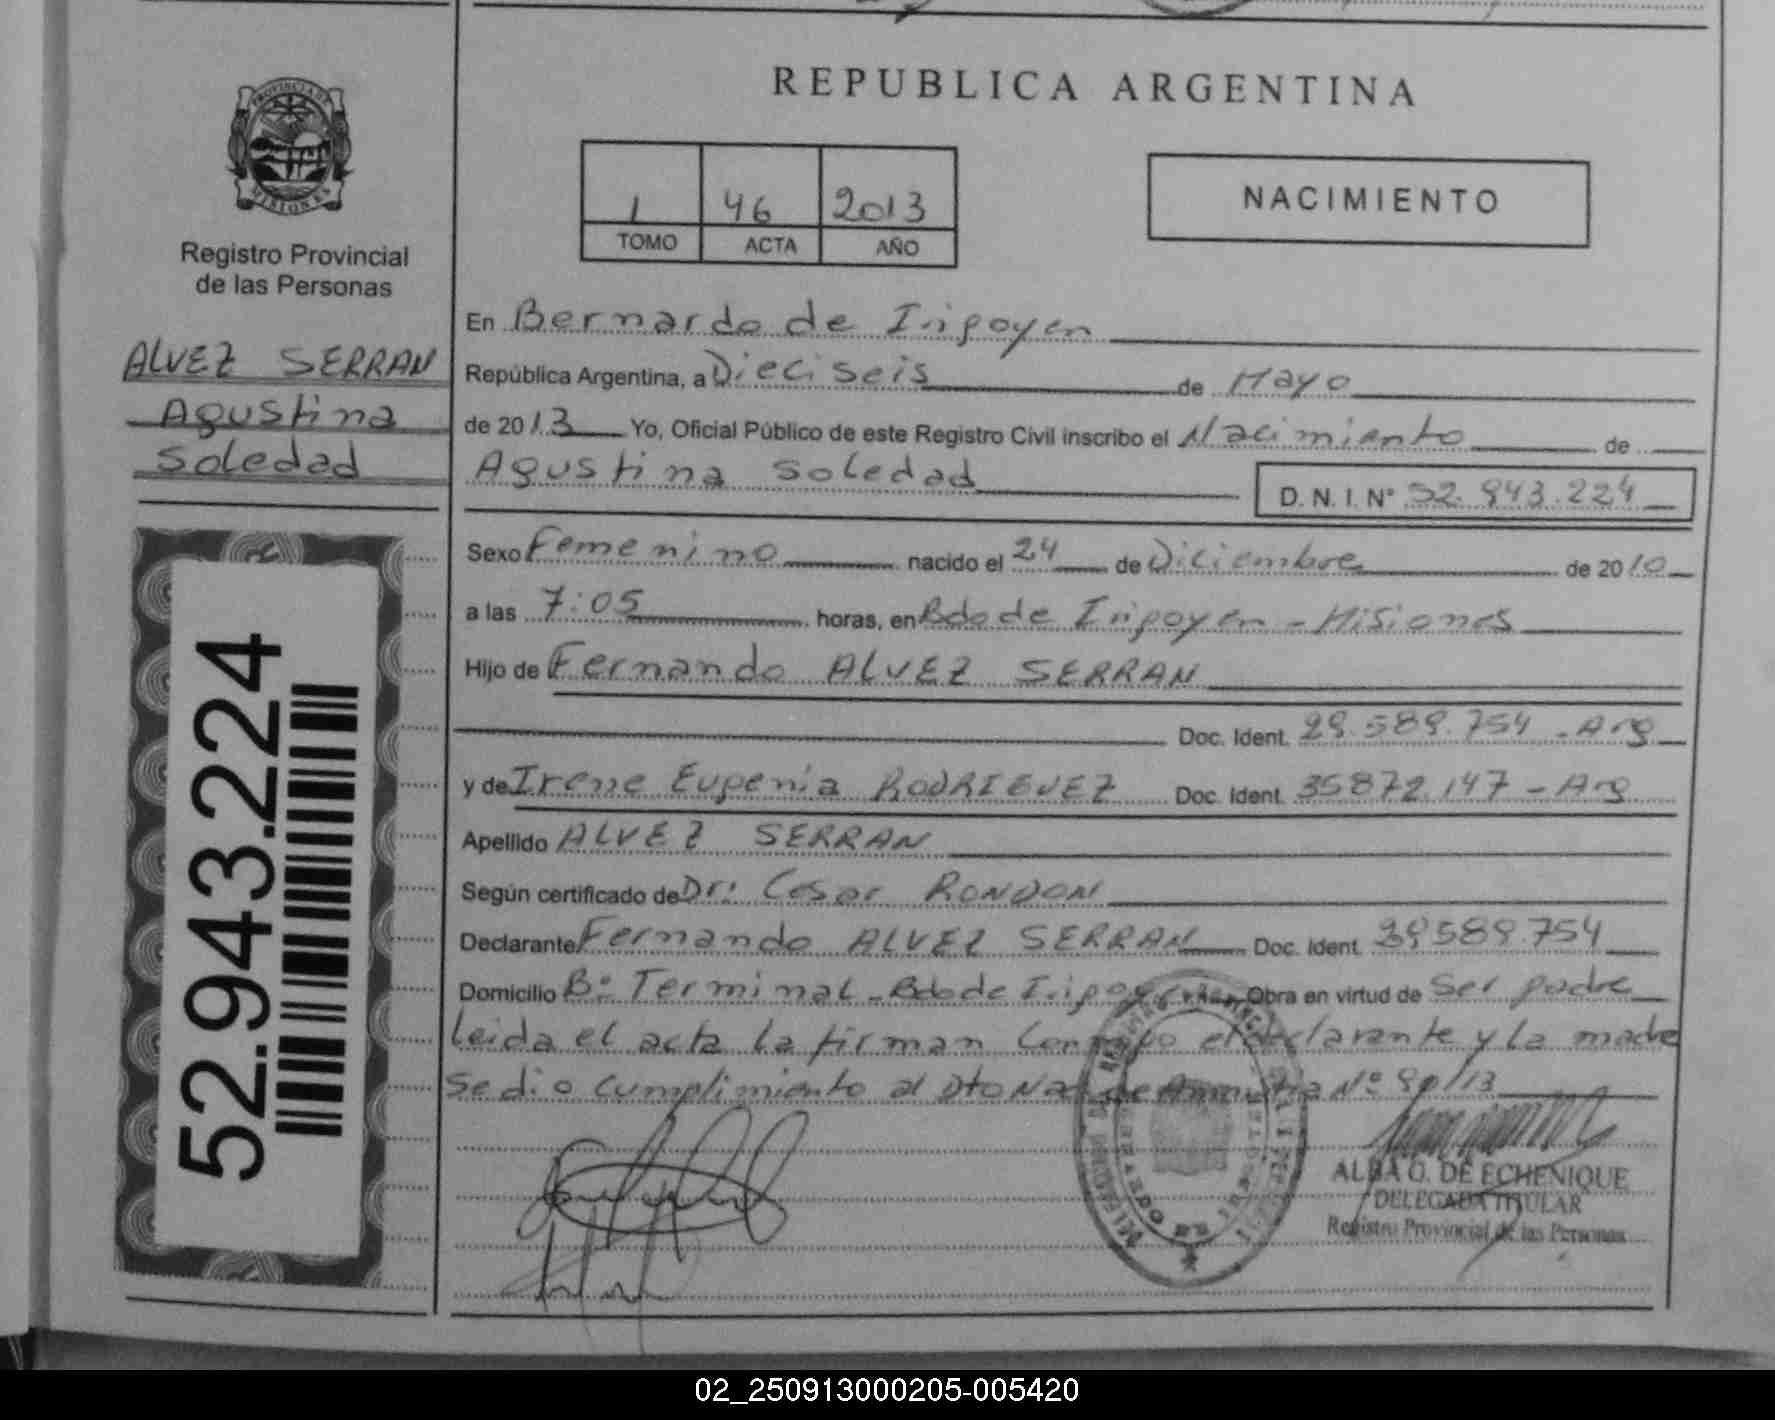 REPUBLICA ARGENTINA
PROVINCIA DE
MISIONES
Registro Provincial
de las Personas
1 46 2013
TOMO ACTA AÑO
NACIMIENTO
ALVEZ SERRAN
Agustina
Soledad
52.943.224
En Bernardo de Irigoyen
República Argentina, a Dieciseis de Mayo
de 2013 Yo, Oficial Público de este Registro Civil inscribo el Nacimiento de
Agustina Soledad D. N. I. N° 52.943.224
Sexo Femenino nacido el 24 de Diciembre de 2010
a las 7:05 horas, en Bdo de Irigoyen - Misiones
Hijo de Fernando ALVEZ SERRAN
Doc. Ident. 29.589.754 - Arg
y de Irene Eugenia RODRIGUEZ Doc. Ident. 35872.147 - Arg
Apellido ALVEZ SERRAN
Según certificado de Dr: Cesar RONDON
Declarante Fernando ALVEZ SERRAN Doc. Ident. 29589.754
Domicilio B° Terminal - Bdo de Irigoyen Obra en virtud de Ser padre
leida el acta la firman Conmigo el declarante y la madre
Se dio Cumplimiento al Dto Nac de Amnistia N° 90/13
ALBA O. DE ECHENIQUE
DELEGADA TITULAR
Registro Provincial de las Personas
02_250913000205-005420